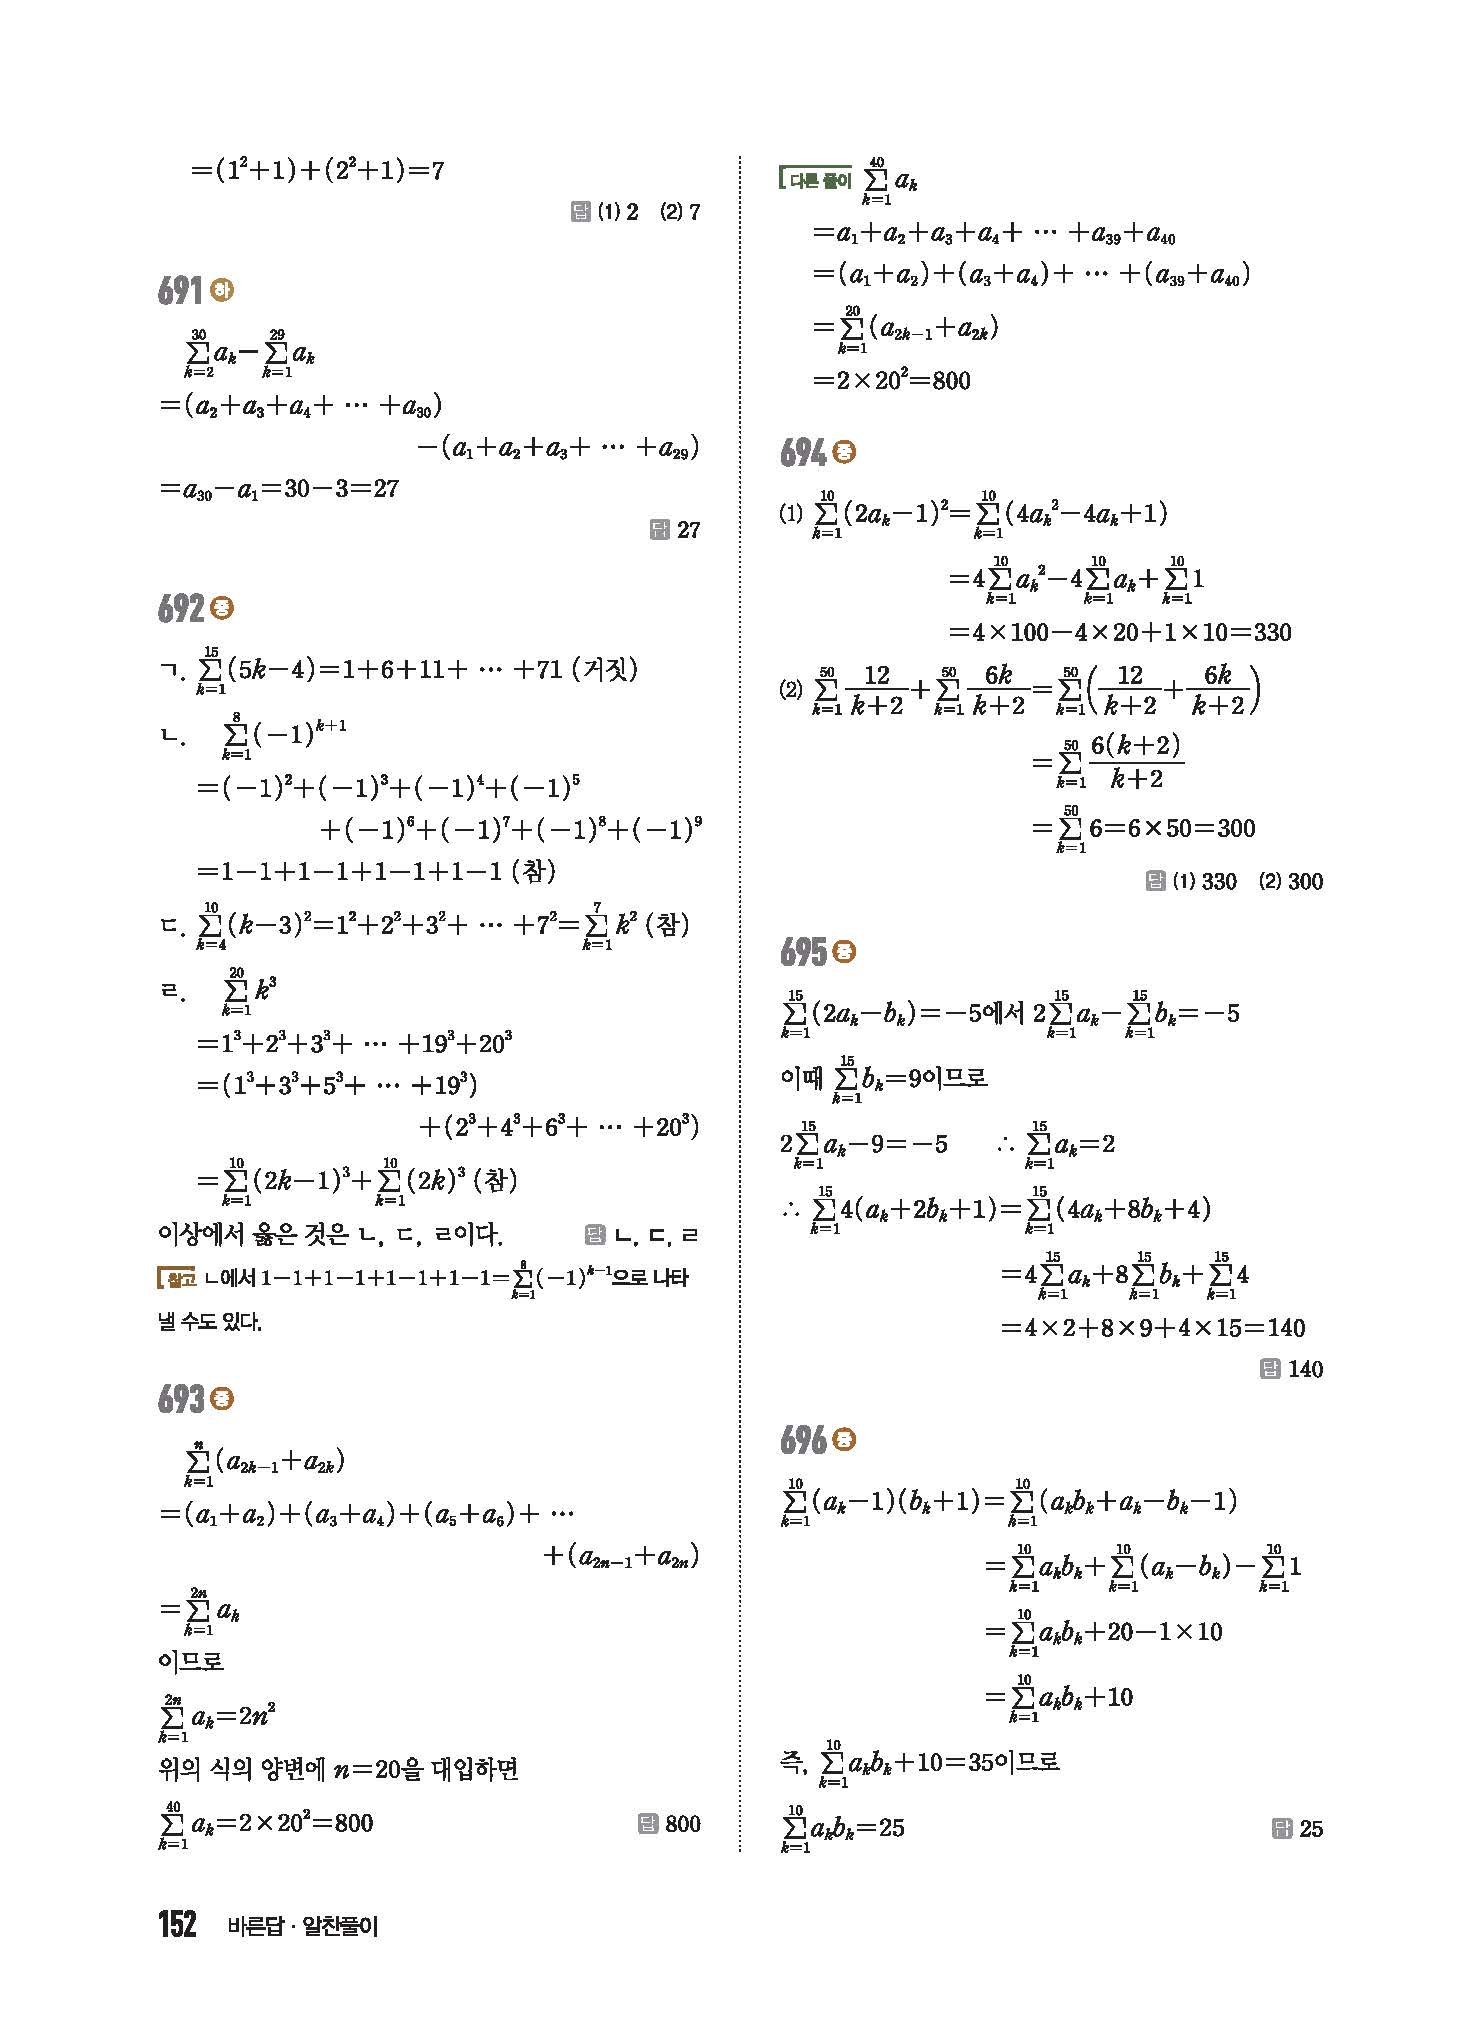 =(1²+1)+(2²+1)=7
답 (1) 2 (2) 7
691 하
\sum_{k=2}^{30} a_k − \sum_{k=1}^{29} a_k
=(a_2+a_3+a_4+ ⋯ +a_{30})
−(a_1+a_2+a_3+ ⋯ +a_{29})
=a_{30}−a_1=30−3=27
답 27
692 중
ㄱ. \sum_{k=1}^{15} (5k−4)=1+6+11+ ⋯ +71 (거짓)
ㄴ. \sum_{k=1}^{8} (−1)^{k+1}
=(−1)²+(−1)³+(−1)⁴+(−1)⁵
+(−1)⁶+(−1)⁷+(−1)⁸+(−1)⁹
=1−1+1−1+1−1+1−1 (참)
ㄷ. \sum_{k=4}^{10} (k−3)²=1²+2²+3²+ ⋯ +7²=\sum_{k=1}^{7} k² (참)
ㄹ. \sum_{k=1}^{20} k³
=1³+2³+3³+ ⋯ +19³+20³
=(1³+3³+5³+ ⋯ +19³)
+(2³+4³+6³+ ⋯ +20³)
=\sum_{k=1}^{10} (2k−1)³+\sum_{k=1}^{10} (2k)³ (참)
이상에서 옳은 것은 ㄴ, ㄷ, ㄹ이다. 답 ㄴ, ㄷ, ㄹ
참고 ㄴ에서 1−1+1−1+1−1+1−1=\sum_{k=1}^{8} (−1)^{k−1}으로 나타
낼 수도 있다.
693 중
\sum_{k=1}^{n} (a_{2k−1}+a_{2k})
=(a_1+a_2)+(a_3+a_4)+(a_5+a_6)+ ⋯
+(a_{2n−1}+a_{2n})
=\sum_{k=1}^{2n} a_k
이므로
\sum_{k=1}^{2n} a_k=2n²
위의 식의 양변에 n=20을 대입하면
\sum_{k=1}^{40} a_k=2×20²=800 답 800
다른 풀이 \sum_{k=1}^{40} a_k
=a_1+a_2+a_3+a_4+ ⋯ +a_{39}+a_{40}
=(a_1+a_2)+(a_3+a_4)+ ⋯ +(a_{39}+a_{40})
=\sum_{k=1}^{20} (a_{2k−1}+a_{2k})
=2×20²=800
694 중
(1) \sum_{k=1}^{10} (2a_k−1)²=\sum_{k=1}^{10} (4a_k²−4a_k+1)
=4\sum_{k=1}^{10} a_k²−4\sum_{k=1}^{10} a_k+\sum_{k=1}^{10} 1
=4×100−4×20+1×10=330
(2) \sum_{k=1}^{50} \frac{12}{k+2}+\sum_{k=1}^{50} \frac{6k}{k+2}=\sum_{k=1}^{50} (\frac{12}{k+2}+\frac{6k}{k+2})
=\sum_{k=1}^{50} \frac{6(k+2)}{k+2}
=\sum_{k=1}^{50} 6=6×50=300
답 (1) 330 (2) 300
695 중
\sum_{k=1}^{15} (2a_k−b_k)=−5에서 2\sum_{k=1}^{15} a_k−\sum_{k=1}^{15} b_k=−5
이때 \sum_{k=1}^{15} b_k=9이므로
2\sum_{k=1}^{15} a_k−9=−5 ∴ \sum_{k=1}^{15} a_k=2
∴ \sum_{k=1}^{15} 4(a_k+2b_k+1)=\sum_{k=1}^{15} (4a_k+8b_k+4)
=4\sum_{k=1}^{15} a_k+8\sum_{k=1}^{15} b_k+\sum_{k=1}^{15} 4
=4×2+8×9+4×15=140
답 140
696 중
\sum_{k=1}^{10} (a_k−1)(b_k+1)=\sum_{k=1}^{10} (a_kb_k+a_k−b_k−1)
=\sum_{k=1}^{10} a_kb_k+\sum_{k=1}^{10} (a_k−b_k)−\sum_{k=1}^{10} 1
=\sum_{k=1}^{10} a_kb_k+20−1×10
=\sum_{k=1}^{10} a_kb_k+10
즉, \sum_{k=1}^{10} a_kb_k+10=35이므로
\sum_{k=1}^{10} a_kb_k=25 답 25
152 바른답 · 알찬풀이